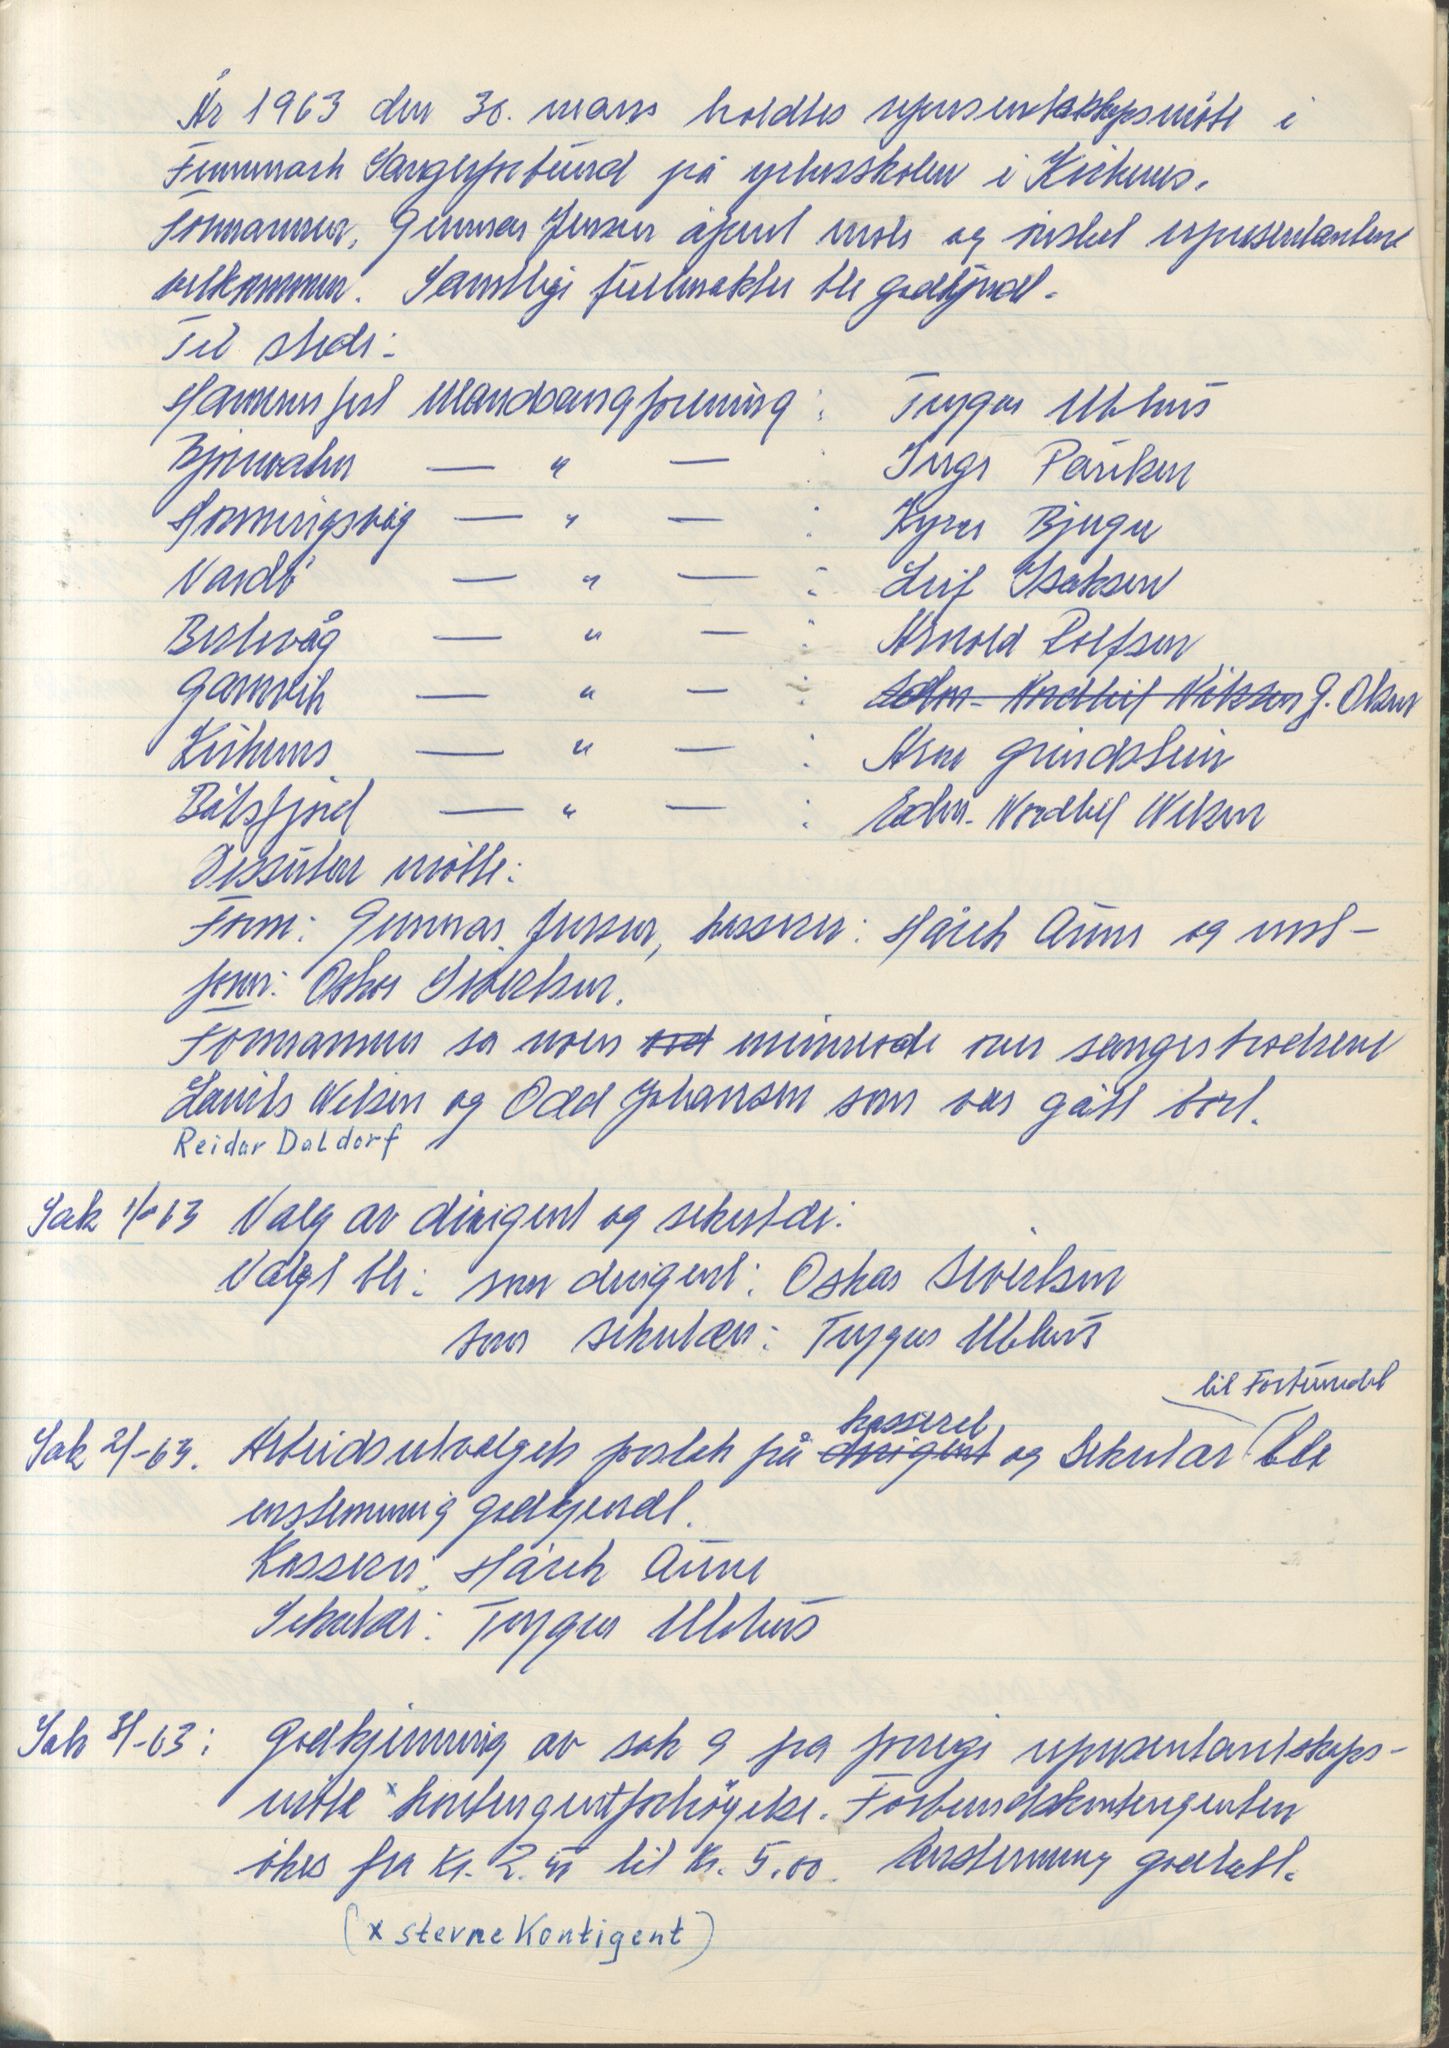 År 1963 den 30. mars holdtes representskapsmöte i
Finnmark Sangerforbund på yrkesskolen i Kirkenes.
Formannen, Gunnar Jensen åpnet möte og ønsket representantene
velkommen. Samtlige fullmakter ble godkjendt.
Til stede:
Hammerfest Mandsangforening : Trygve Ulhus
Bjørnevatn — " — : Inge Pariken
Honningsvåg — " — : Bjerge
Vardö — " — : Leif Isaksen
Berlevåg — " — : Arnold Rolfsen
Gamvik — " — : Edm. Nordhif Nilsen G. Olsen
Kirkenes — " — : Arne Grindstein
Båtsfjord — " — : Edm. Nordhif Nilsen
Dessuten møtte:
Form: Gunnar Jensen, kasserer: Hårek Aune og vise-
form: Oskar Sivertsen.
Formannen sa noen ord minneord over sangerbrødrene
Laurits Nilsen og Odd Johansen som var gått bort.
Reidar Daldorf
Sak 1/-63 Valg av dirigent og sekretær:
Valgt ble: som dirigent: Oskar Sivertsen
som sekretær: Trygve Ulhus
til Forbundet
kasserer
Sak 2/-63. Arbeidsutvalgets forslag på dirigent og Sekretær ble
enstemmig godkjendt.
Kasserer: Hårek Aune
Sekretær: Trygve Ulhus
Sak 3/-63: Godkjenning av sak 9 fra forrige representantskaps-
möte x kontingentforhöyelse. Forbundskontingenten
ökes fra Kr. 2.50 til Kr. 5,00. Enstemmig godtatt.
(x stevne Kontigent)